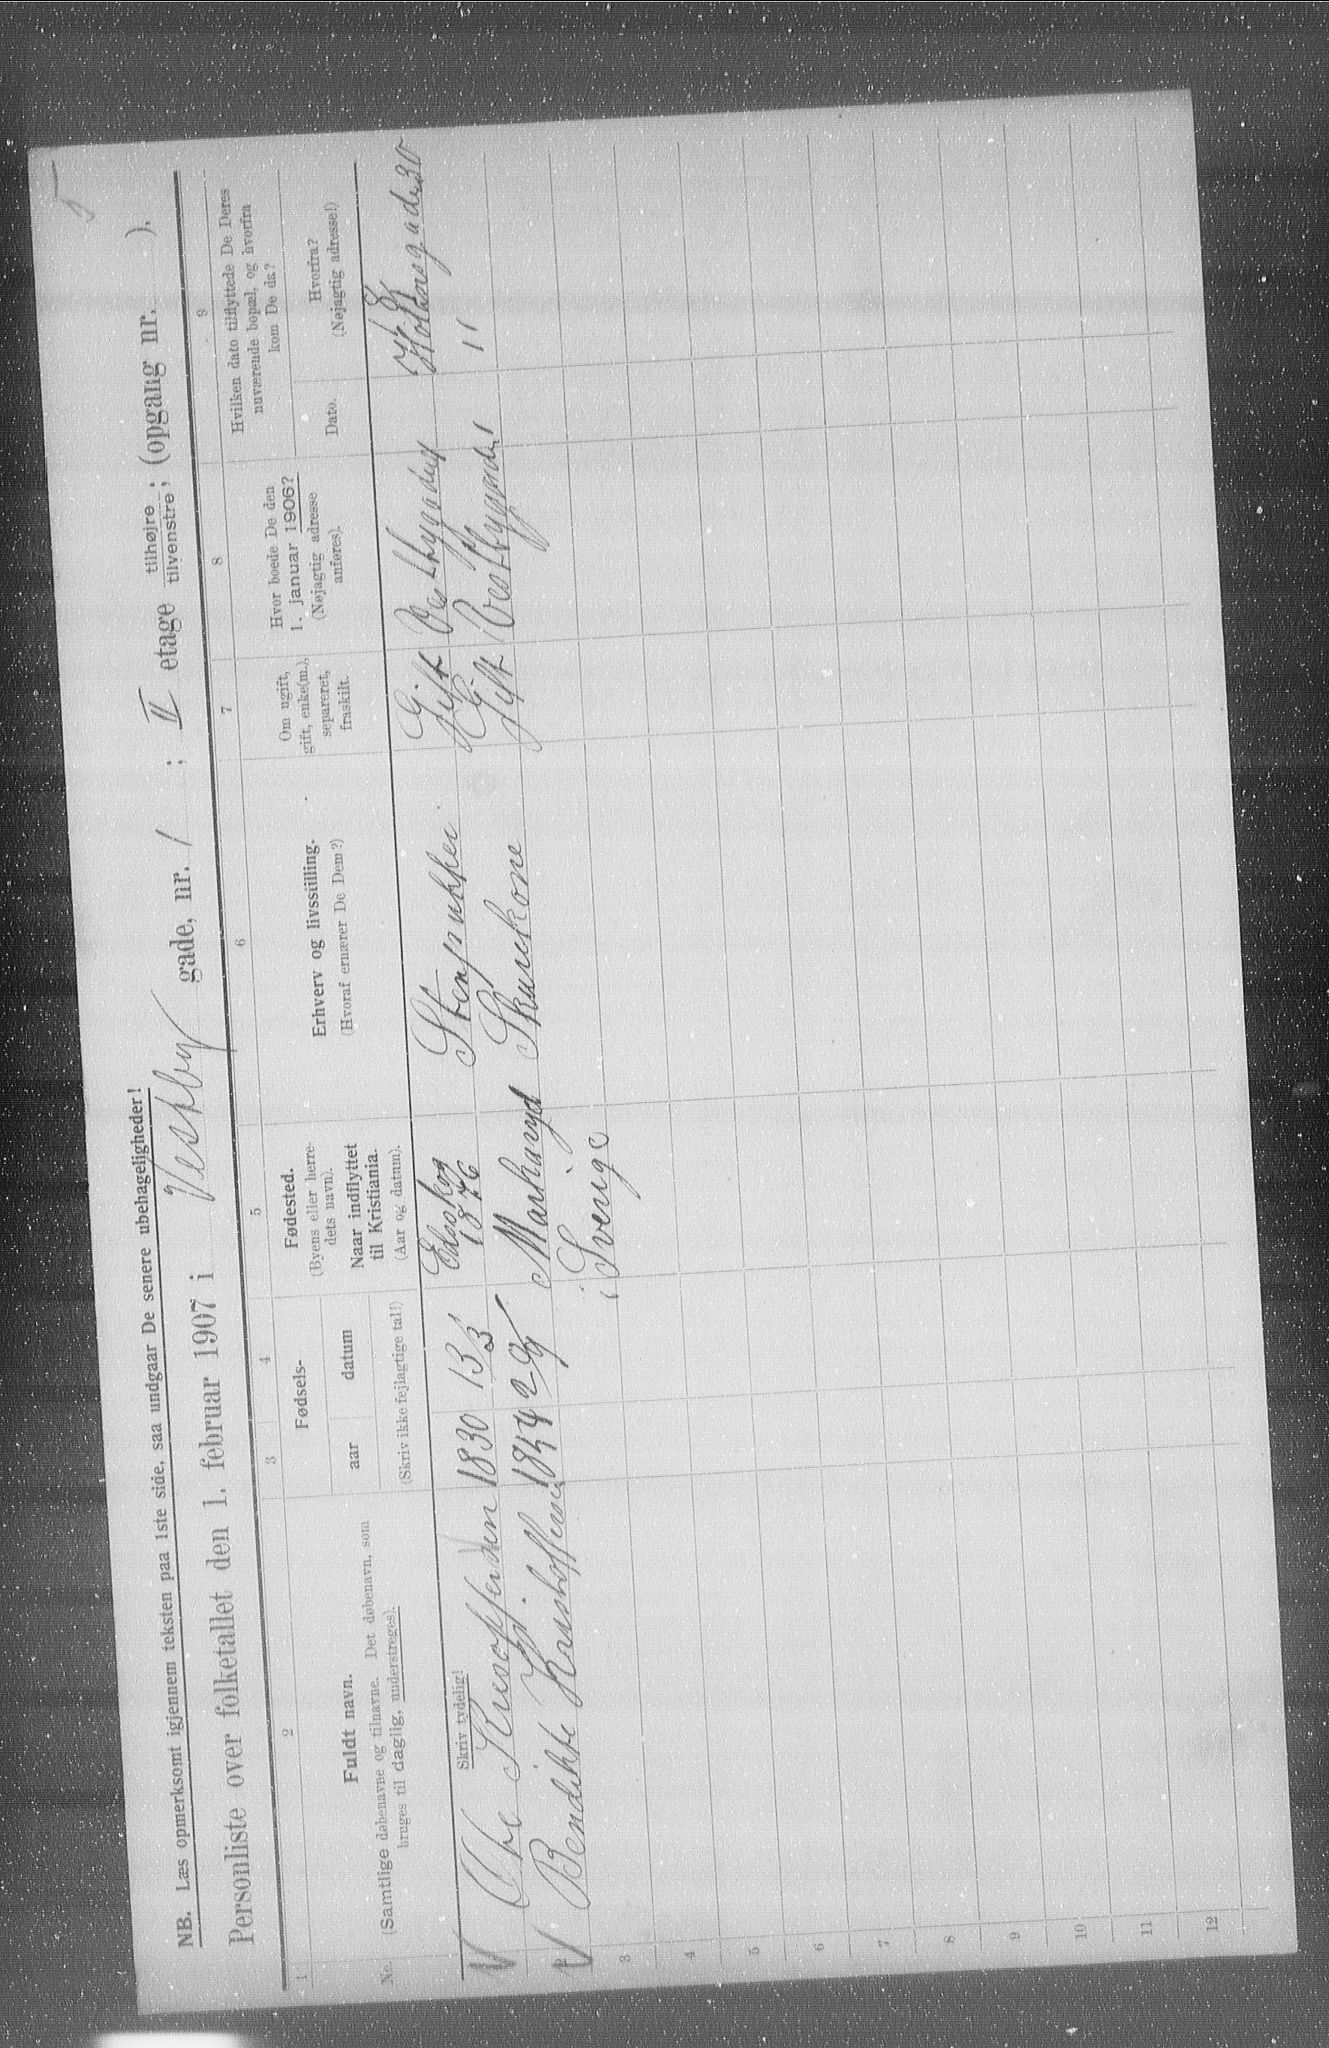 NB. Læs opmerksomt igjennem teksten paa 1ste side, saa undgaar De senere ubehageligheder!
Personliste over folketallet den 1. februar 1907 i Vestby gade, nr. 1 ; II etage tilhøjre ; tilvenstre ; (opgang nr. ).
1 2 3 4 5 6 7 8 9
No.
Fuldt navn.
(Samtlige døbenavne og tilnavne. Det døbenavn, som
bruges til daglig, understreges).
Skriv tydelig!
Fødsels-
aar datum
(Skriv ikke fejlagtige tal!)
Fødested.
(Byens eller herre-
dets navn).
Naar indflyttet
til Kristiania.
(Aar og datum).
Erhverv og livsstilling.
(Hvoraf ernærer De Dem?)
Om ugift,
gift, enke(m.),
separeret,
fraskilt.
Hvor boede De den
1. januar 1906?
(Nøjagtig adresse
anføres).
Hvilken dato tilflyttede De Deres
nuværende bopæl, og hvorfra
kom De da?
Dato.
Hvorfra?
(Nøjagtig adresse!)
1830 13/3 Edsskog Gift
1876
Bendikte 1844 Markaryd Skurekone Gift Vestbygade 1 "
i Sverige
3
4
5
6
7
8
9
10
11
12